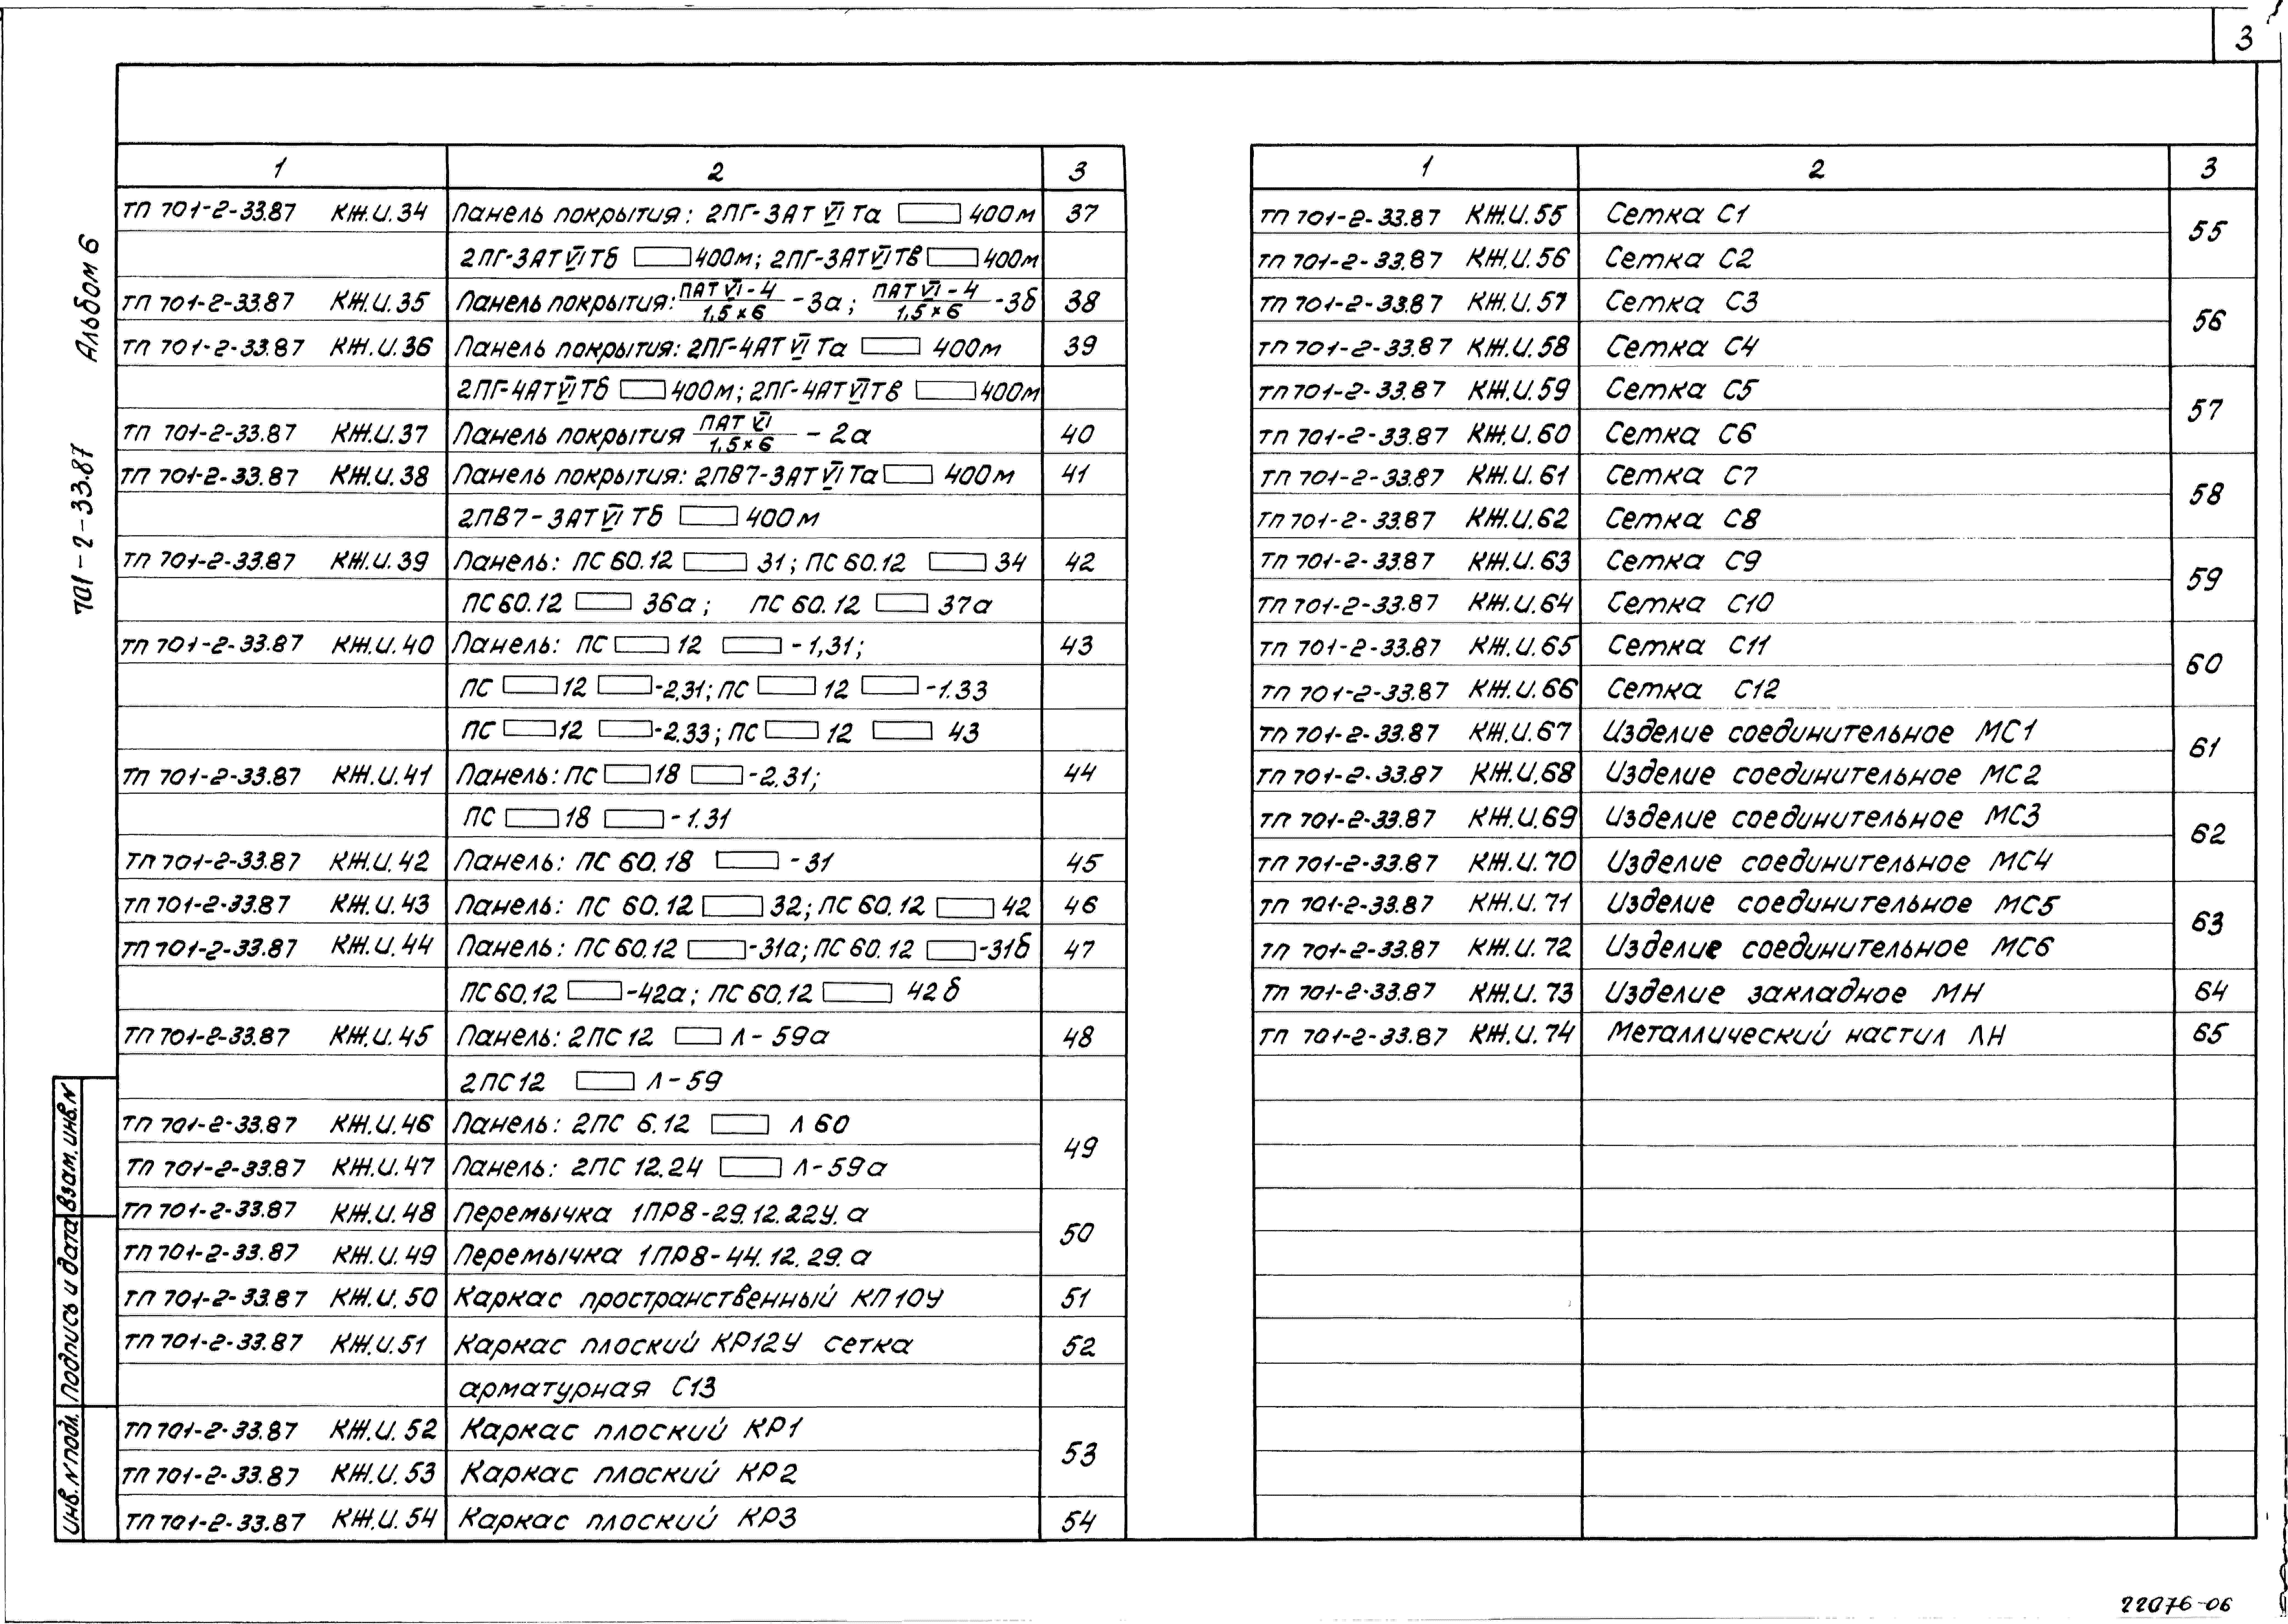 3
Альбом 6
701-2-33.87
1 2 3
ТП 701-2-33.87 КЖ.И.34 Панель покрытия: 2ПГ-3АТ VI Та ▭ 400м 37
2ПГ-3АТ VI Тб ▭ 400м; 2ПГ-3АТ VI Тв ▭ 400м
ТП 701-2-33.87 КЖ.И.35 Панель покрытия: ПАТ VI-4/1,5×6 -3а; ПАТ VI-4/1,5×6 -3б 38
ТП 701-2-33.87 КЖ.И.36 Панель покрытия: 2ПГ-4АТ VI Та ▭ 400м 39
2ПГ-4АТ VI Тб ▭ 400м; 2ПГ-4АТ VI Тв ▭ 400м
ТП 701-2-33.87 КЖ.И.37 Панель покрытия ПАТ VI/1,5×6 - 2а 40
ТП 701-2-33.87 КЖ.И.38 Панель покрытия: 2ПВ7-3АТ VI Та ▭ 400м 41
2ПВ7-3АТ VI Тб ▭ 400м
ТП 701-2-33.87 КЖ.И.39 Панель: ПС 60.12 ▭ 31; ПС 60.12 ▭ 34 42
ПС 60.12 ▭ 36а; ПС 60.12 ▭ 37а
ТП 701-2-33.87 КЖ.И.40 Панель: ПС ▭ 12 ▭ -1,31; 43
ПС ▭ 12 ▭ -2.31; ПС ▭ 12 ▭ -1.33
ПС ▭ 12 ▭ -2.33; ПС ▭ 12 ▭ 43
ТП 701-2-33.87 КЖ.И.41 Панель: ПС ▭ 18 ▭ -2.31; 44
ПС ▭ 18 ▭ -1.31
ТП 701-2-33.87 КЖ.И.42 Панель: ПС 60.18 ▭ -31 45
ТП 701-2-33.87 КЖ.И.43 Панель: ПС 60.12 ▭ 32; ПС 60.12 ▭ 42 46
ТП 701-2-33.87 КЖ.И.44 Панель: ПС 60.12 ▭ -31а; ПС 60.12 ▭ -31б 47
ПС 60.12 ▭ -42а; ПС 60.12 ▭ 42б
ТП 701-2-33.87 КЖ.И.45 Панель: 2ПС 12 ▭ Л-59а 48
2ПС 12 ▭ Л-59
ТП 701-2-33.87 КЖ.И.46 Панель: 2ПС 6.12 ▭ Л 60
49
ТП 701-2-33.87 КЖ.И.47 Панель: 2ПС 12.24 ▭ Л-59а
ТП 701-2-33.87 КЖ.И.48 Перемычка 1ПР8-29.12.22У.а
50
ТП 701-2-33.87 КЖ.И.49 Перемычка 1ПР8-44.12.29.а
ТП 701-2-33.87 КЖ.И.50 Каркас пространственный КП10У 51
ТП 701-2-33.87 КЖ.И.51 Каркас плоский КР12У сетка 52
арматурная С13
ТП 701-2-33.87 КЖ.И.52 Каркас плоский КР1
53
ТП 701-2-33.87 КЖ.И.53 Каркас плоский КР2
ТП 701-2-33.87 КЖ.И.54 Каркас плоский КР3 54
1 2 3
ТП 701-2-33.87 КЖ.И.55 Сетка С1
55
ТП 701-2-33.87 КЖ.И.56 Сетка С2
ТП 701-2-33.87 КЖ.И.57 Сетка С3
56
ТП 701-2-33.87 КЖ.И.58 Сетка С4
ТП 701-2-33.87 КЖ.И.59 Сетка С5
57
ТП 701-2-33.87 КЖ.И.60 Сетка С6
ТП 701-2-33.87 КЖ.И.61 Сетка С7
58
ТП 701-2-33.87 КЖ.И.62 Сетка С8
ТП 701-2-33.87 КЖ.И.63 Сетка С9
59
ТП 701-2-33.87 КЖ.И.64 Сетка С10
ТП 701-2-33.87 КЖ.И.65 Сетка С11
60
ТП 701-2-33.87 КЖ.И.66 Сетка С12
ТП 701-2-33.87 КЖ.И.67 Изделие соединительное МС1
61
ТП 701-2-33.87 КЖ.И.68 Изделие соединительное МС2
ТП 701-2-33.87 КЖ.И.69 Изделие соединительное МС3
62
ТП 701-2-33.87 КЖ.И.70 Изделие соединительное МС4
ТП 701-2-33.87 КЖ.И.71 Изделие соединительное МС5
63
ТП 701-2-33.87 КЖ.И.72 Изделие соединительное МС6
ТП 701-2-33.87 КЖ.И.73 Изделие закладное МН 64
ТП 701-2-33.87 КЖ.И.74 Металлический настил ЛН 65
Инв. N подл. Подпись и дата Взам. инв. N
22076-06